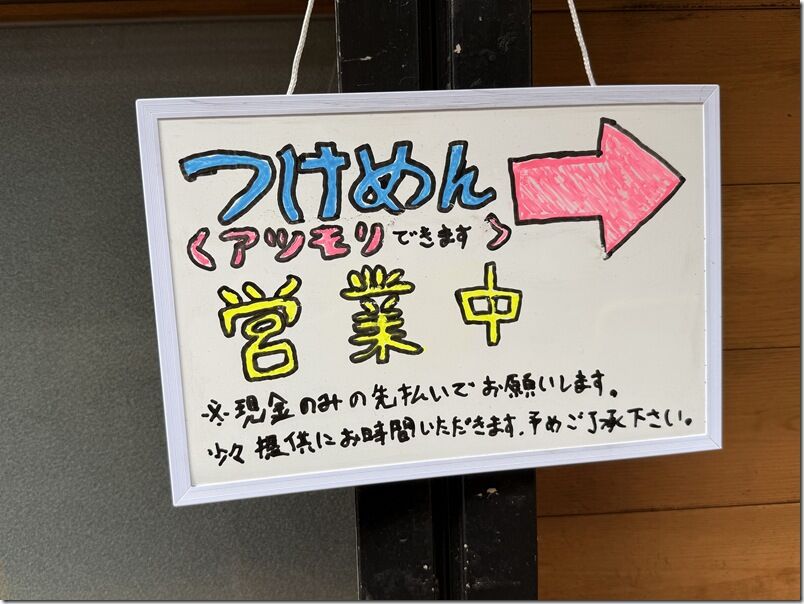 つけめん
〈アツモリできます〉
営業中
※現金のみの先払いでお願いします。
少々提供にお時間いただきます。予めご了承下さい。